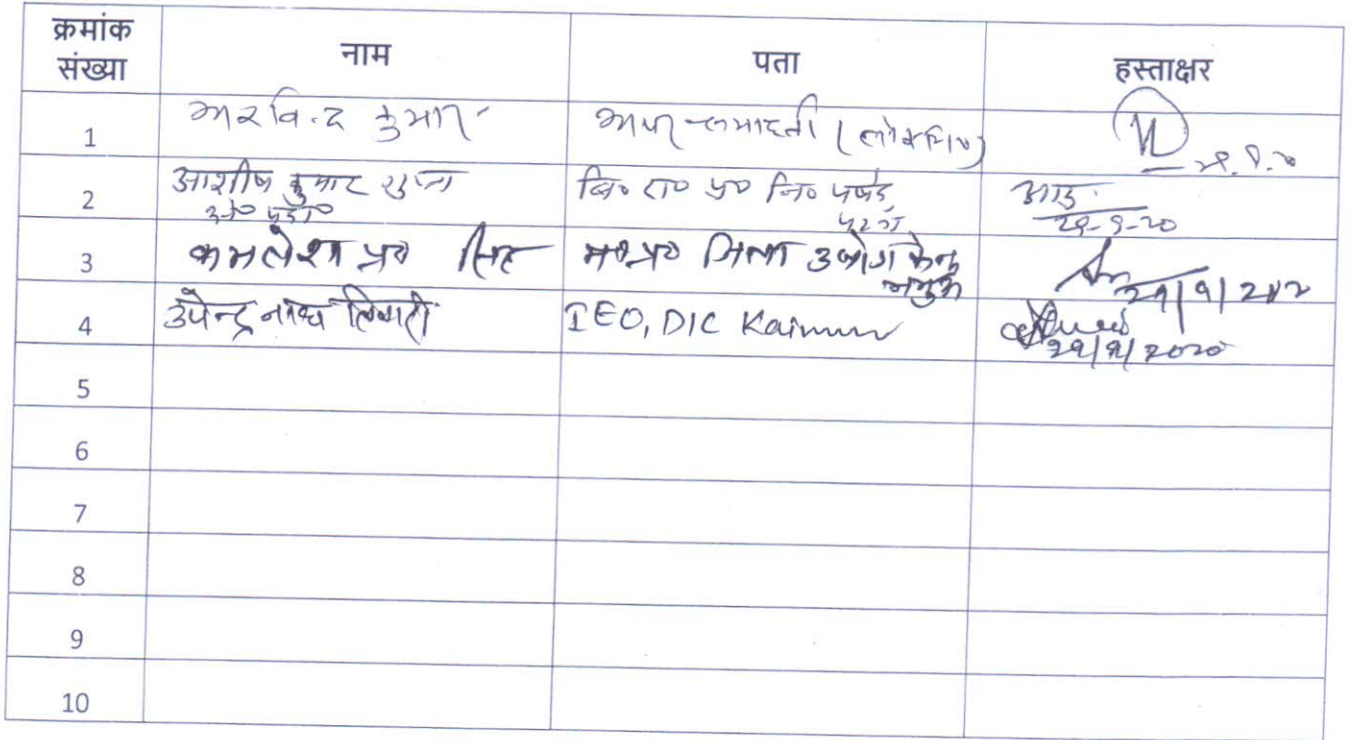 क्रमांक संख्या नाम पता हस्ताक्षर
1 अरविन्द कुमार अपर समाहर्ता
2 आशीष कुमार गुप्ता बि० रा० प्र० नि० पर्षद, 29-9-20
पटना
3 कमलेश प्र० सिंह म० प्र० जिला उद्योग केन्द्र 29/9/202
4 उपेन्द्र नाथ तिवारी IEO, DIC Kaimur 29/9/2020
5
6
7
8
9
10